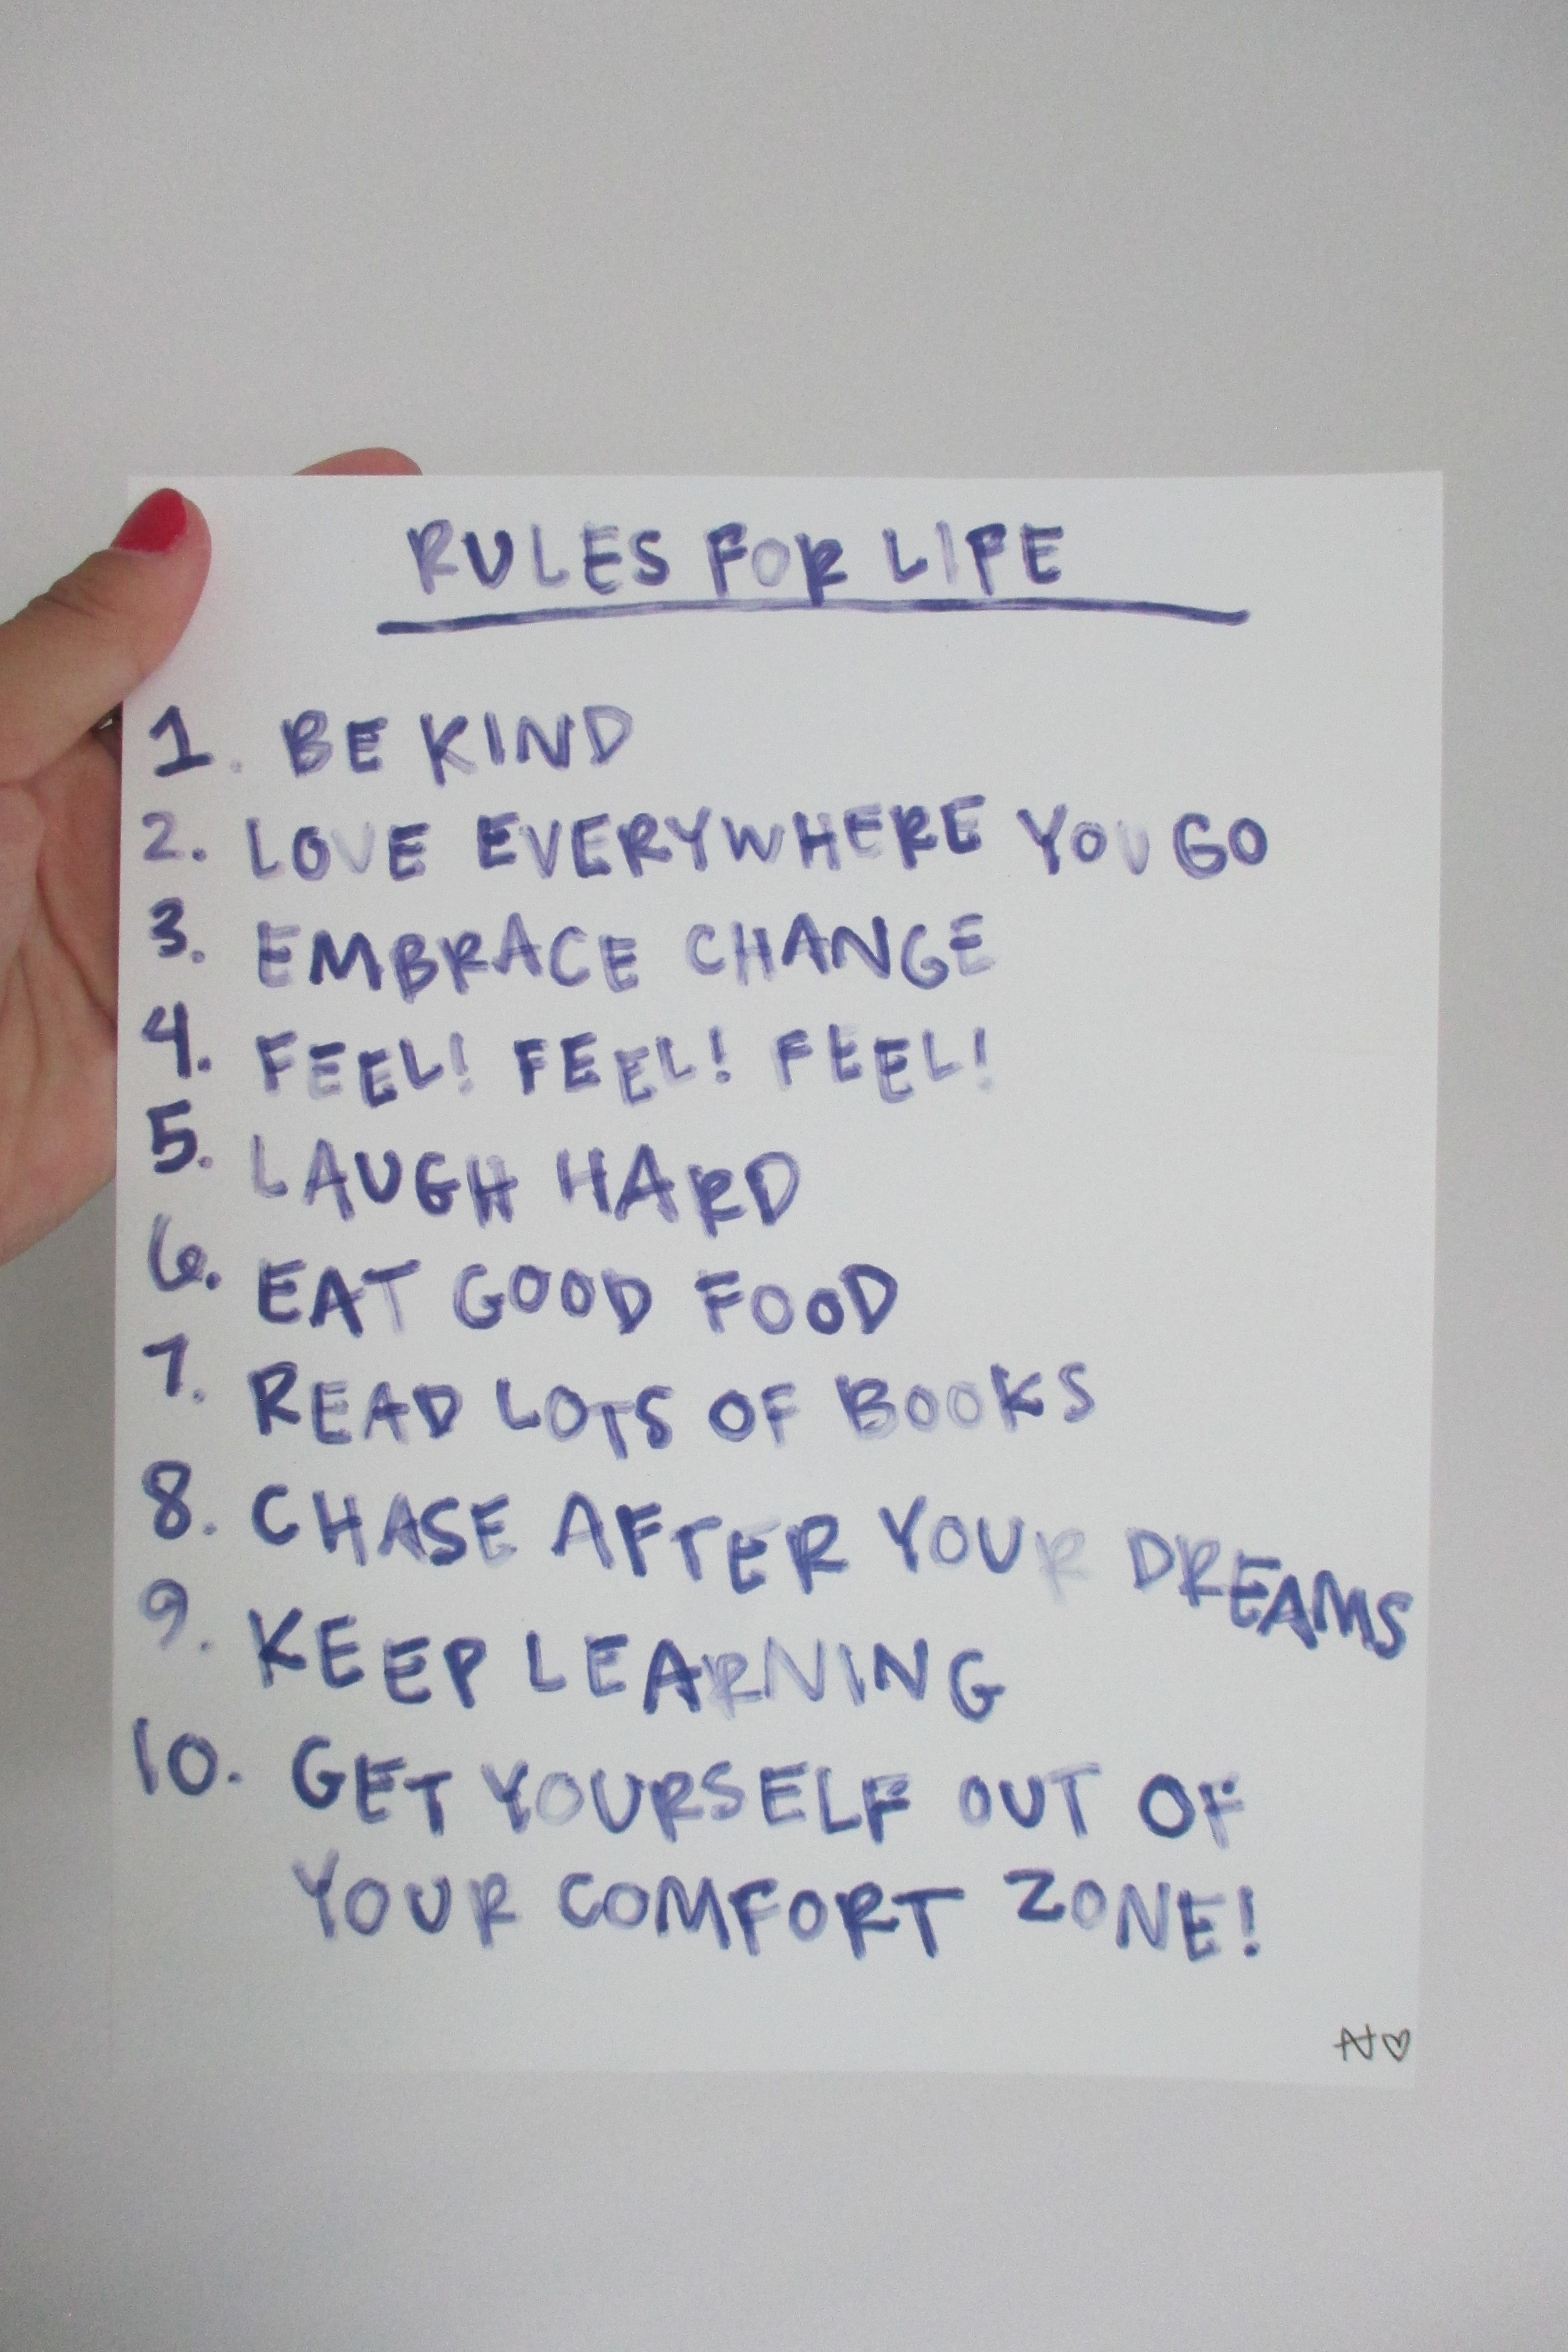 RULES FOR LIFE
1. BE KIND
2. LOVE EVERYWHERE YOU GO
3. EMBRACE CHANGE
4. FEEL! FEEL! FEEL!
5. LAUGH HARD
6. EAT GOOD FOOD
7. READ LOTS OF BOOKS
8. CHASE AFTER YOUR DREAMS
9. KEEP LEARNING
10. GET YOURSELF OUT OF
YOUR COMFORT ZONE!